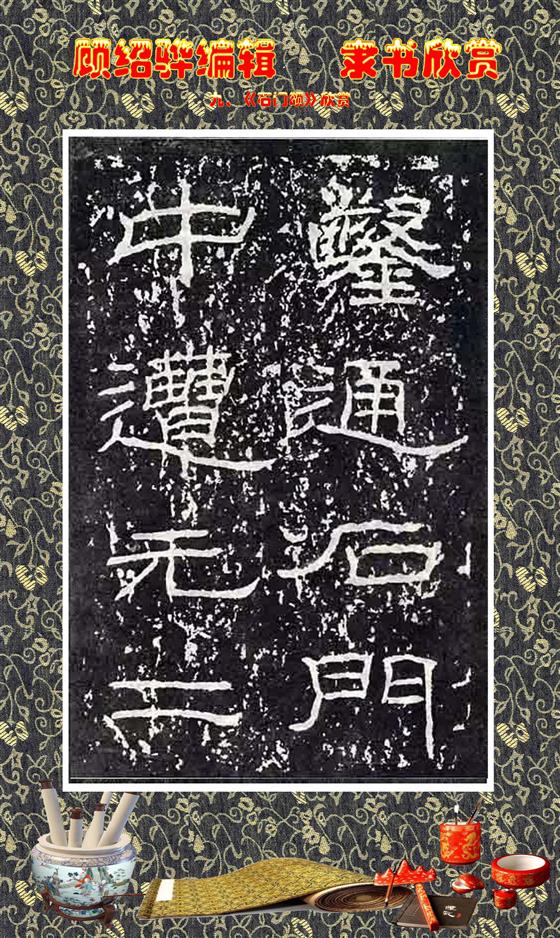 顾绍骅编辑 隶书欣赏
九、《石门颂》欣赏
鑿通石門
中遭元二